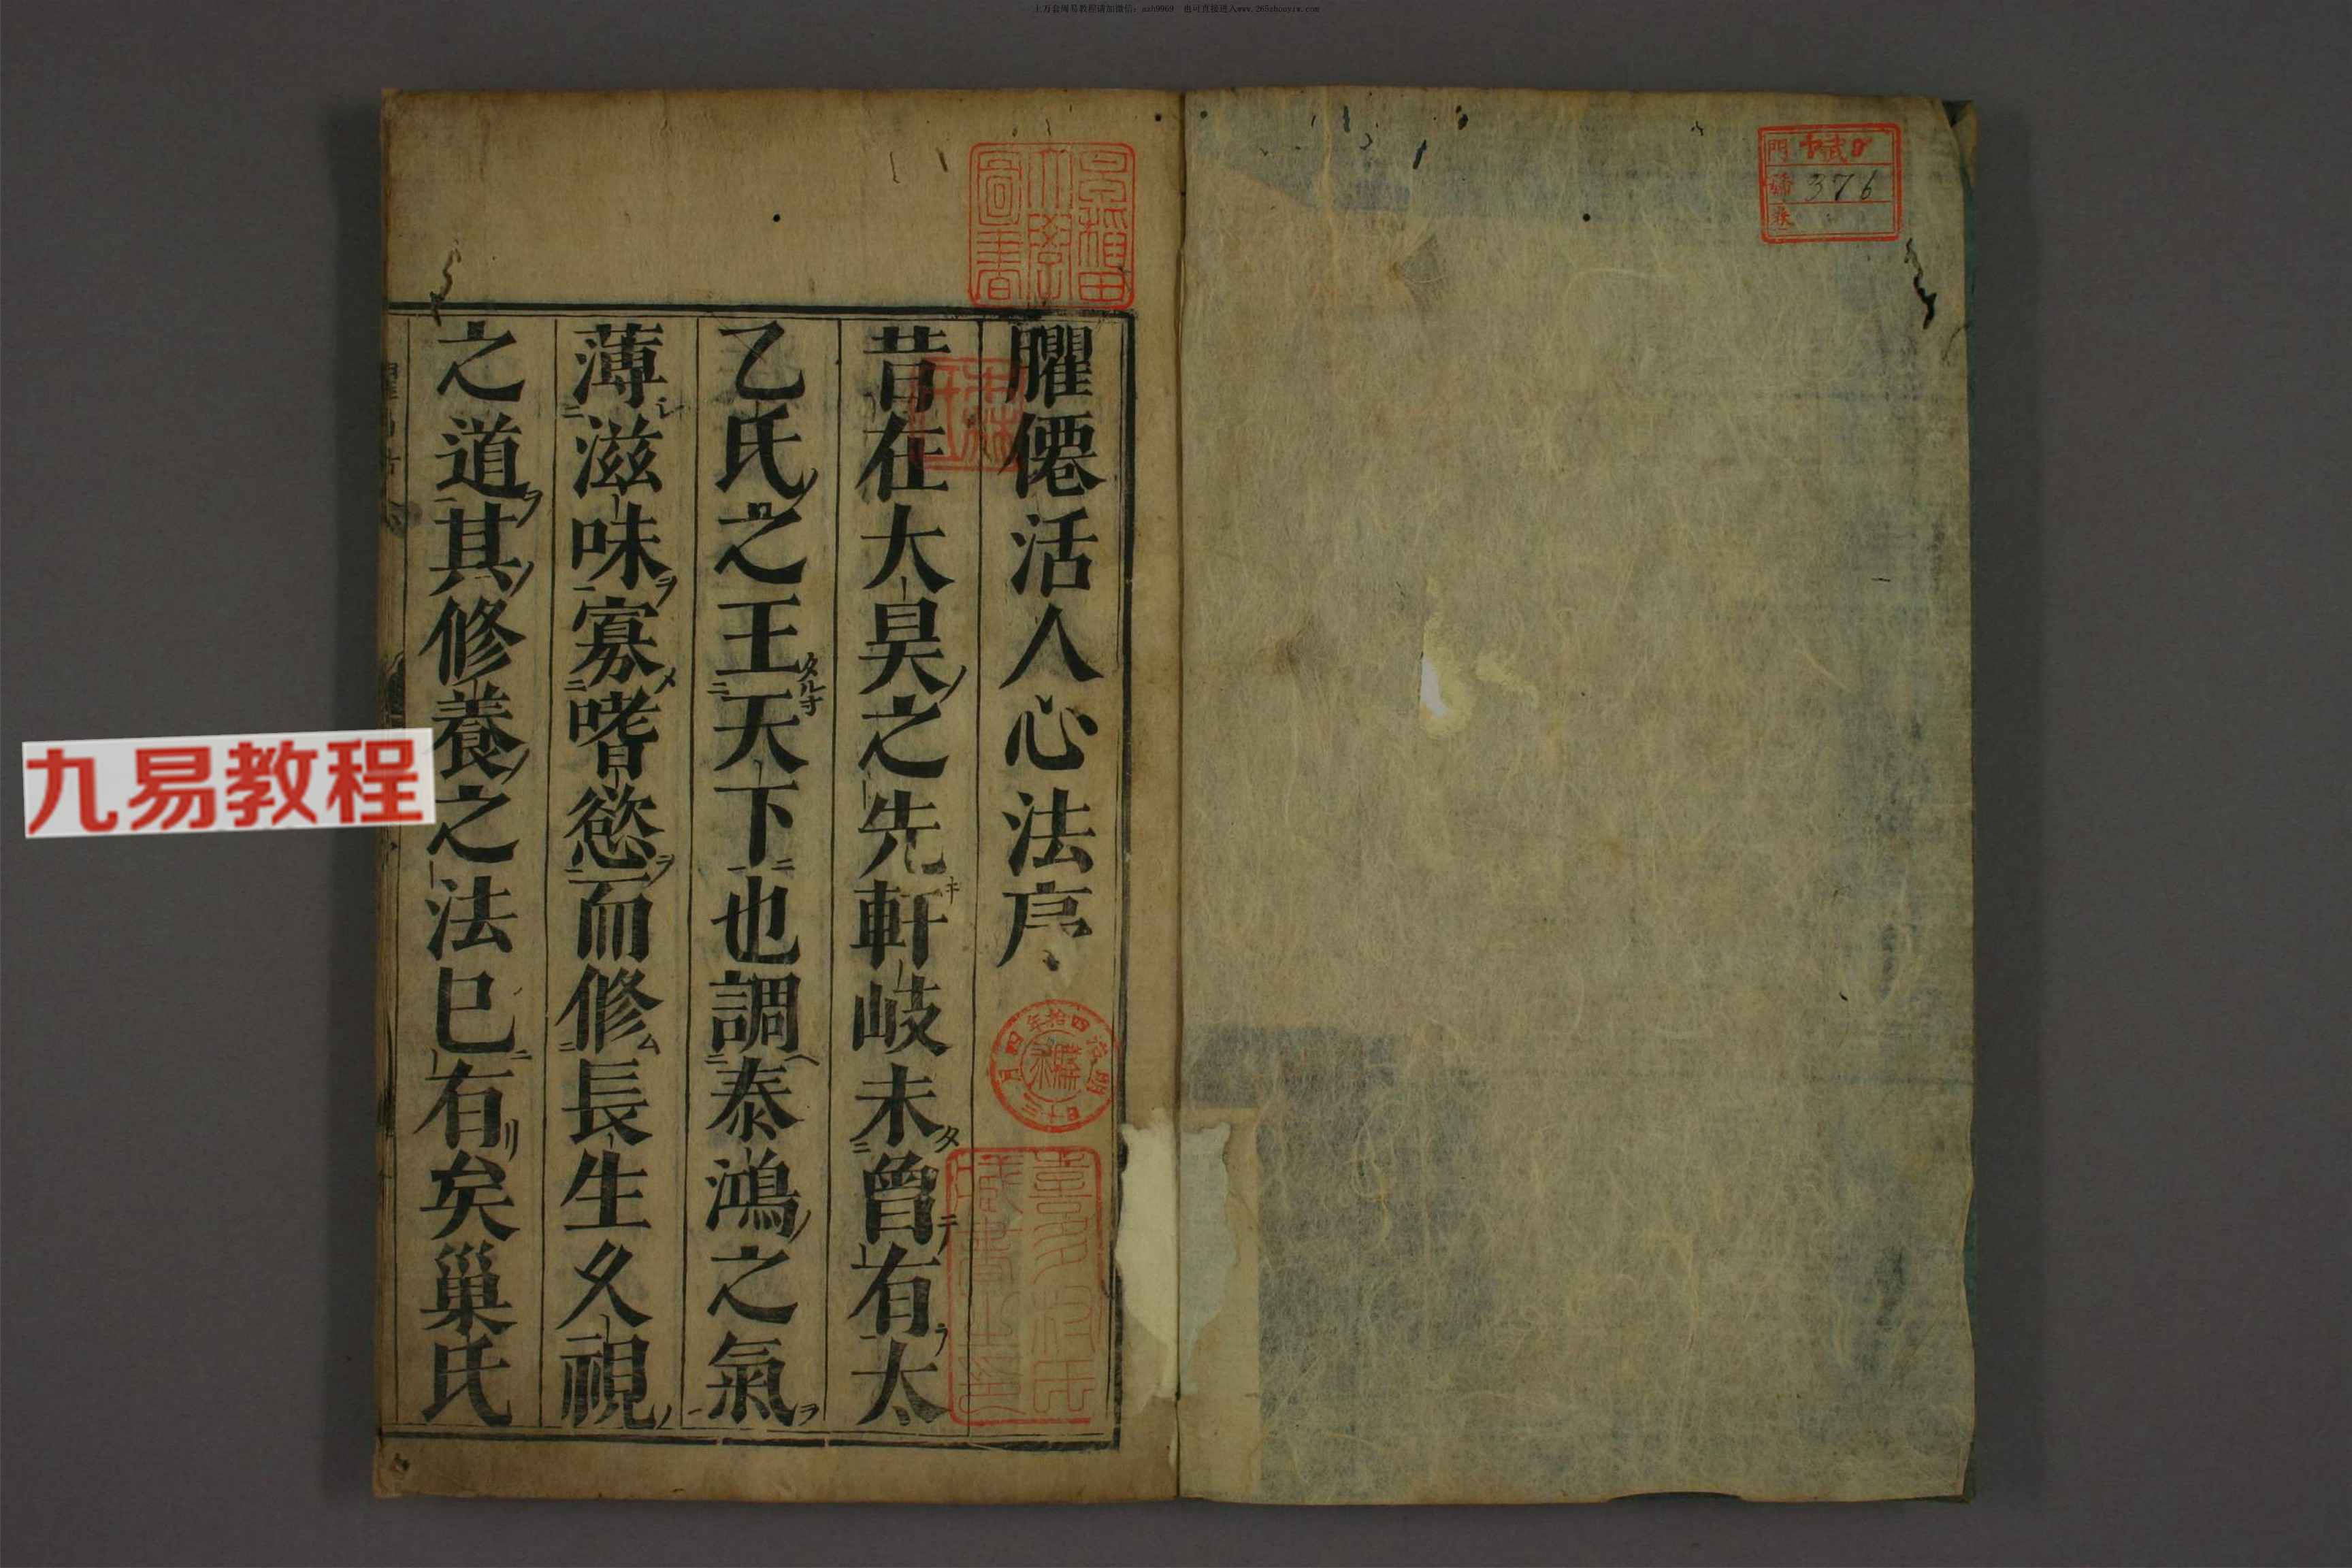 上万套周易教程请加微信：mxh9969　也可直接进入www.265zhouyiw.com
門
號 376
臞僊活人心法序
昔在大昊之先軒岐未曾有太
乙氏之王天下也調泰鴻之氣
薄滋味寡嗜慾而修長生久視
之道其修養之法巳有矣巢氏
早稲田大學圖書
九易教程